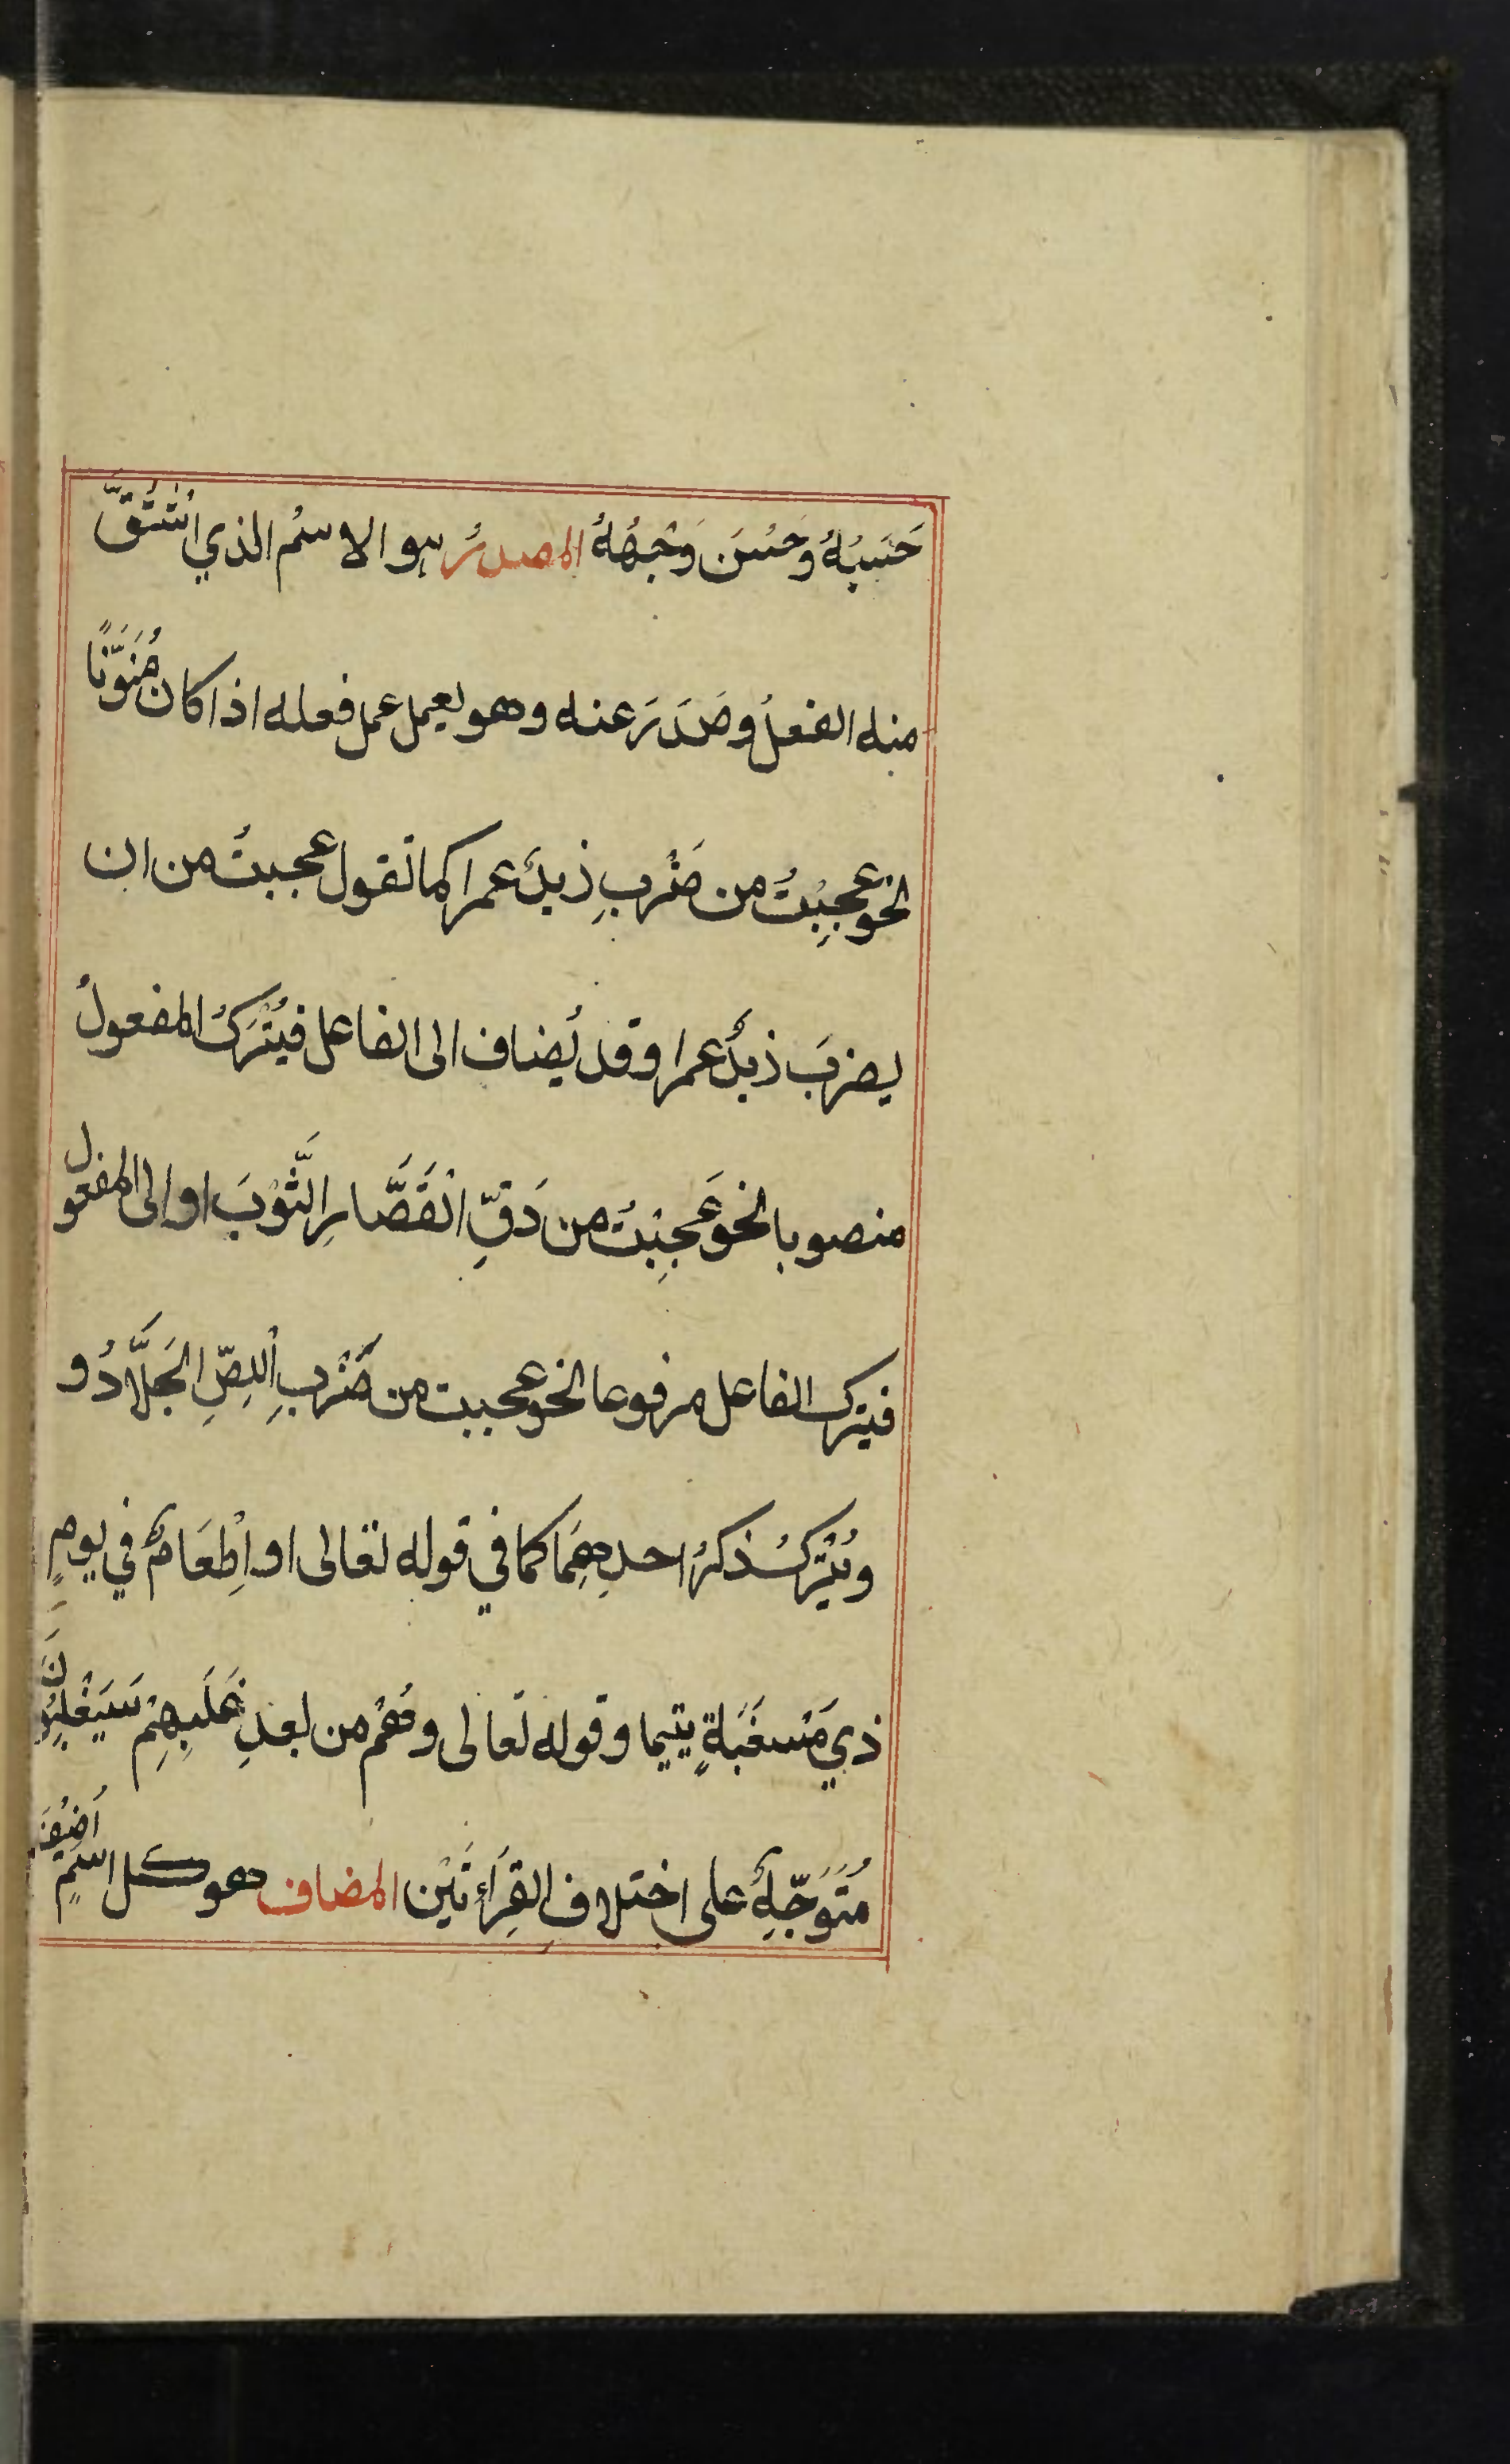 حَسَبُهُ وحَسُنَ وَجْهُهُ المصدرُ هو الاسمُ الذي اشْتُقَّ
منه الفعلُ وصَدَرَ عنه وهو يعمل عمل فعله اذا كان مُنَوَّنًا
نحو عجِبْتُ من ضَرْبٍ زيدٌ عمرا كما تقول عجبتُ من ان
يضربَ زيدٌ عمرا وقد يُضاف الى الفاعل فيُتْرَكُ المفعولُ
منصوبا نحو عَجِبْتُ من دَقِّ القَصَّارِ الثَّوْبَ او الى المفعول
فيترك الفاعل مرفوعا نحو عجبت من ضَرْبِ اللِّصِّ الجَلَّادُ و
ويُتْرَكُ ذكرُ احدِهِمَا كما في قوله تعالى او اِطْعَامٌ في يومٍ
ذي مَسْغَبَةٍ يتيما وقوله تعالى وهُمْ من بعدِ غَلَبِهِمْ سَيَغْلِبُونَ
مُتَوَجِّهٌ على اختلاف القِرَاءتَيْن المضاف هو كل اسمٍ اُضِيْفَ